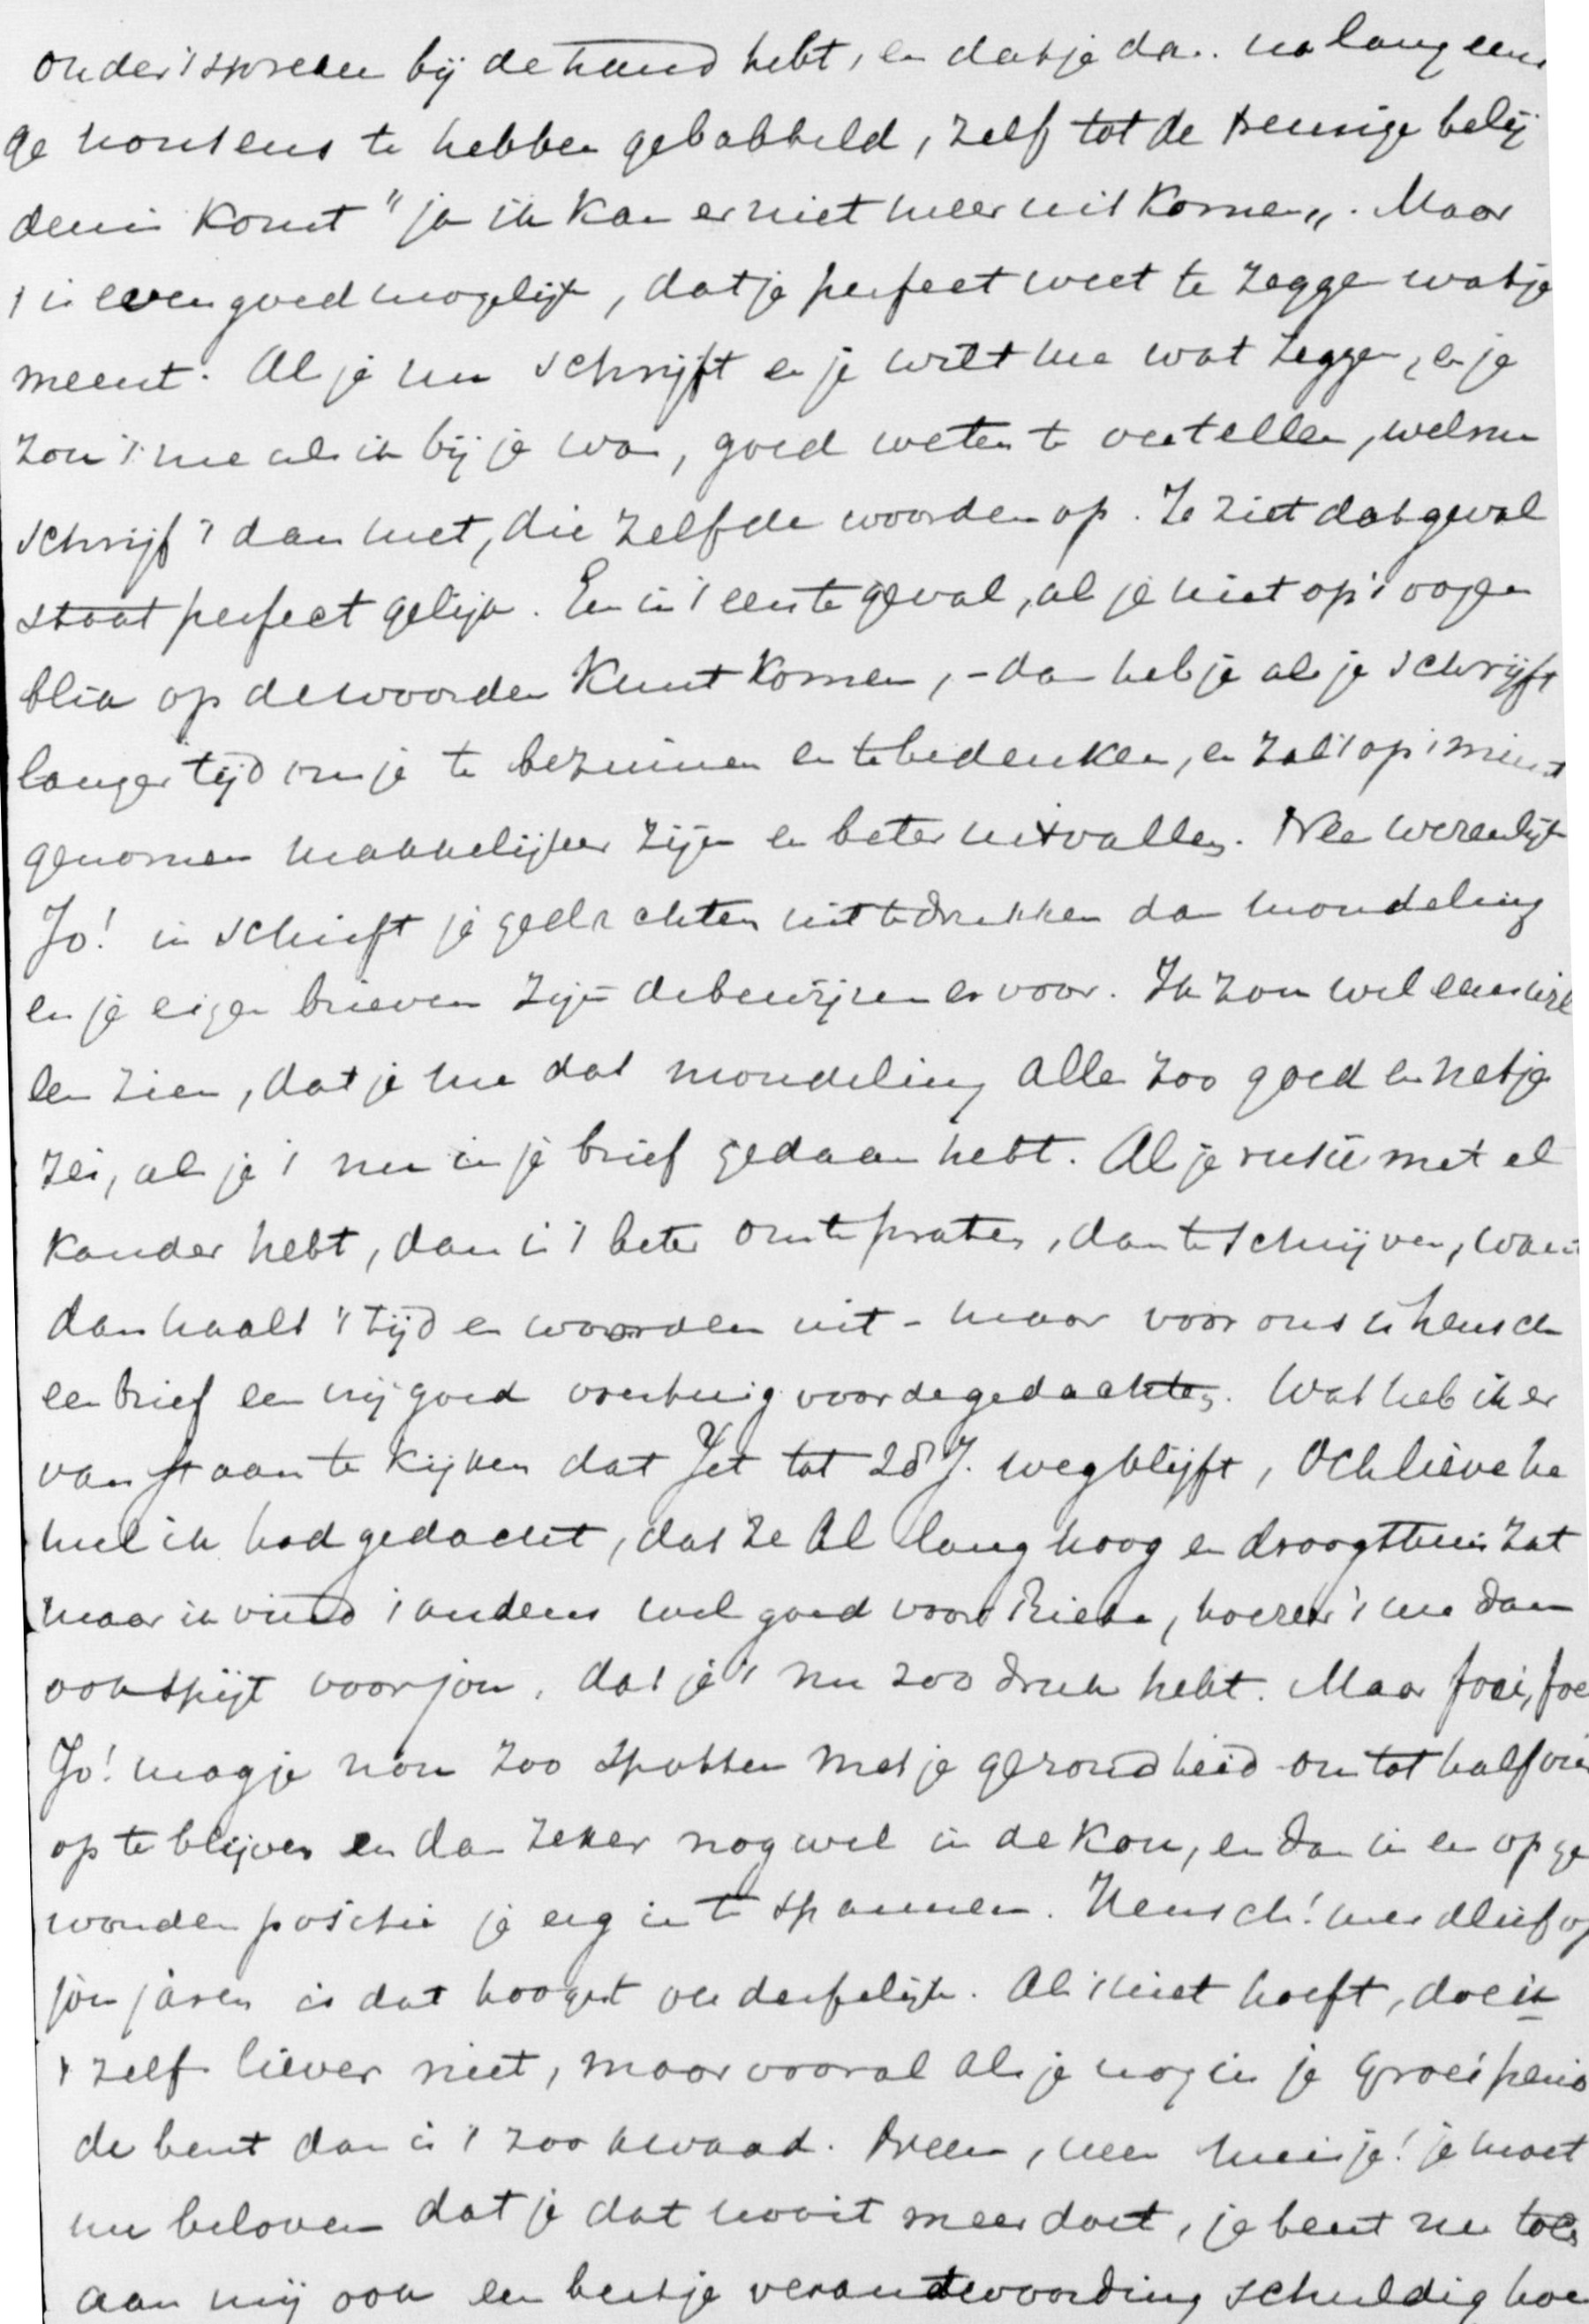 onder 't spreken bij de hand hebt, en dat je dan na lang eeni
ge nonsens te hebben gebabbeld, zelf tot de treurige belij
denis komt "ja ik kan er niet meer uitkomen". Maar
't is even goed mogelijk, dat je perfect weet te zeggen wat je
meent. Als je nu schrijft en je wilt me wat zeggen, en je
zou 't me als ik bij je was, goed weten te vertellen, welnu
schrijf 't dan met, die zelfde woorden op. Je ziet dat geval
staat perfect gelijk. En in 't eerste geval, als je niet op 't oogen
blik op de woorden kunt komen, - dan heb je als je schrijft
langer tijd om je te bezinnen en te bedenken, en zal 't op 't minst
genomen makkelijker zijn en beter uitvallen. Nee werkelijk
Jo! in schrift je gedachten uit te drukken dan mondeling
en je eigen brieven zijn de bewijzen er voor. Ik zou wel eens wil
len zien, dat je me dat mondeling alles zoo goed en netjes
zei, als je 't nu in je brief gedaan hebt. Als je rusie met el
kander hebt, dan is 't beter om te praten, dan te schrijven, want
dan haalt 't tijd en woorden uit - maar voor ons is heusch
een brief een vrij goed voertuig voor de gedachten. Wat heb ik er
van staan te kijken dat Jet tot 28 J. wegblijft, Och lieve he
mel ik had gedacht, dat ze al lang hoog en droog thuis zat
maar ik vind 't anders wel goed voor , hoezeer 't me dan
ook spijt voor jou, dat je 't nu zoo druk hebt. Maar foei, foei
Jo! mag je nou zoo spotten met je gezondheid om tot half vier
op te blijven en dan zeker nog wel in de kou, en dan in een opge
wonden positie je erg in te spannen. Heusch! meidlief op
jou jaren is dat hoogst verderfelijk. Als 't niet hoeft, doe ik
't zelf liever niet, maar vooral als je nog in je groeiperio
de bent dan is 't zoo kwaad. Neen, neen meisje! je moet
me beloven dat je dat nooit meer doet, je bent nu toch
aan mij ook een beetje verantwoording schuldig hoe